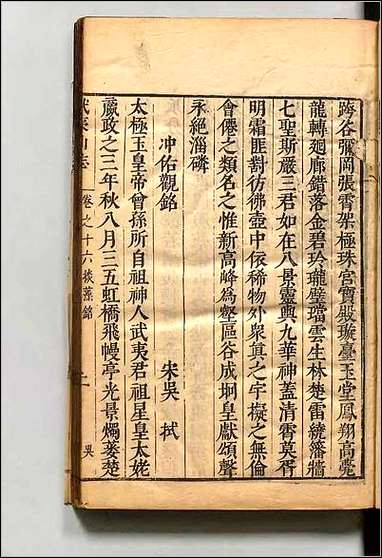 跨谷彌岡張霄架極珠宮寶殿璇臺玉堂鳳翔高甍
龍轉廻廊錯落金碧玲瓏璧璫雲生林楚雷繞籓牆
七聖斯嚴三君如在八景靈輿九華神蓋清霄莫胥
明霜匪對彷彿壺中依稀物外衆真之宇擬之無倫
會僊之類名之惟新高峰為壑區谷成垌皇猷頌聲
永絕淄磷
冲佑觀銘
宋吳 拭
太極玉皇帝曾孫所自祖神人武夷君祖星皇太姥
嬴政之三年秋八月三五虹橋飛幔亭光景燭蔞楚
武夷山志
卷之十六 掞藻 銘
二
吳